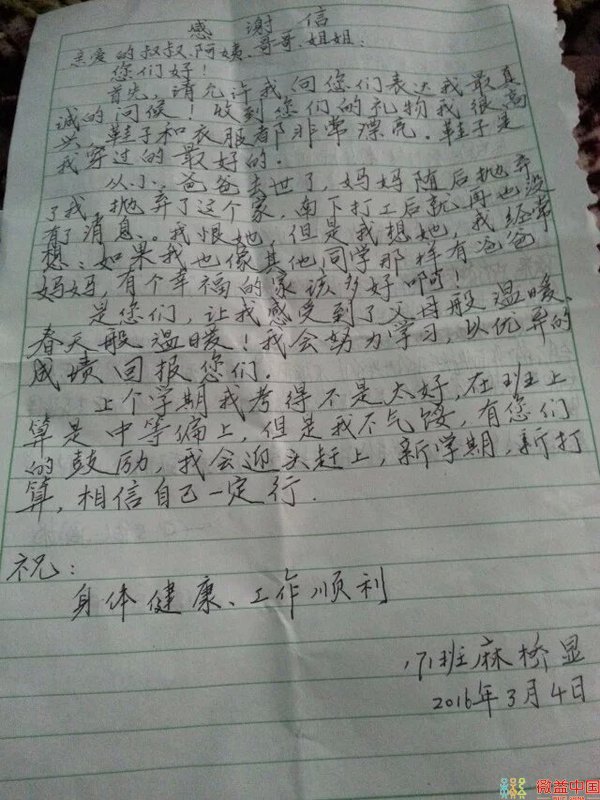 感谢信
亲爱的叔叔、阿姨、哥哥、姐姐：
您们好！
首先，请允许我向您们表达我最真
诚的问候！收到您们的礼物我很高
兴，鞋子和衣服都非常漂亮。鞋子是
我穿过的最好的。
从小，爸爸去世了，妈妈随后抛弃
了我，抛弃了这个家，南下打工后就再也没
有了消息。我恨她，但是我想她，我经常
想：如果我也像其他同学那样有爸爸
妈妈，有个幸福的家该多好啊！
是您们，让我感受到了父母般温暖、
春天般温暖！我会努力学习，以优异的
成绩回报您们。
上个学期我考得不是太好，在班上
算是中等偏上，但是我不气馁，有您们
的鼓励，我会迎头赶上，新学期，新打
算，相信自己一定行.
祝：
身体健康、工作顺利
班麻桥显
2016年3月4日
微益中国